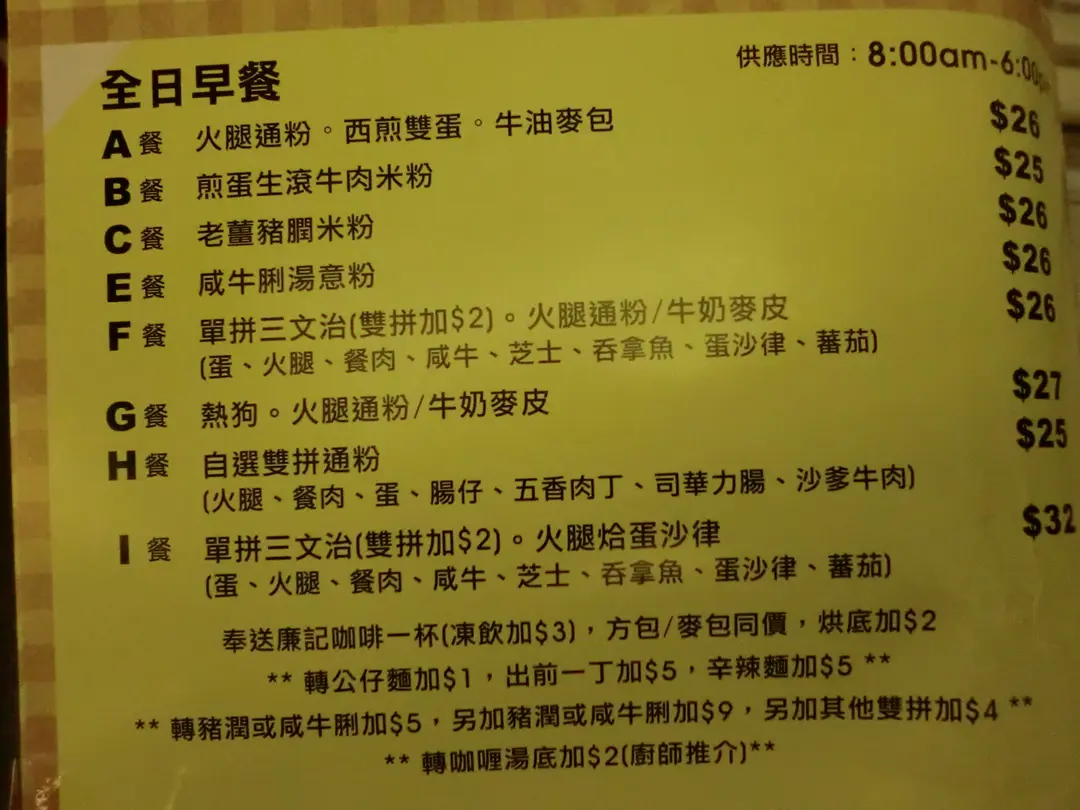 全日早餐 供應時間：8:00am-6:00
A餐 火腿通粉。西煎雙蛋。牛油麥包 $26
B餐 煎蛋生滾牛肉米粉 $25
C餐 老薑豬膶米粉 $26
E餐 咸牛脷湯意粉 $26
F餐 單拼三文治(雙拼加$2)。火腿通粉/牛奶麥皮 $26
(蛋、火腿、餐肉、咸牛、芝士、吞拿魚、蛋沙律、蕃茄)
G餐 熱狗。火腿通粉/牛奶麥皮 $27
H餐 自選雙拼通粉 $25
(火腿、餐肉、蛋、腸仔、五香肉丁、司華力腸、沙爹牛肉)
I餐 單拼三文治(雙拼加$2)。火腿烚蛋沙律 $32
(蛋、火腿、餐肉、咸牛、芝士、吞拿魚、蛋沙律、蕃茄)
奉送廉記咖啡一杯(凍飲加$3)，方包/麥包同價，烘底加$2
** 轉公仔麵加$1，出前一丁加$5，辛辣麵加$5 **
** 轉豬潤或咸牛脷加$5，另加豬潤或咸牛脷加$9，另加其他雙拼加$4 **
** 轉咖喱湯底加$2(廚師推介)**